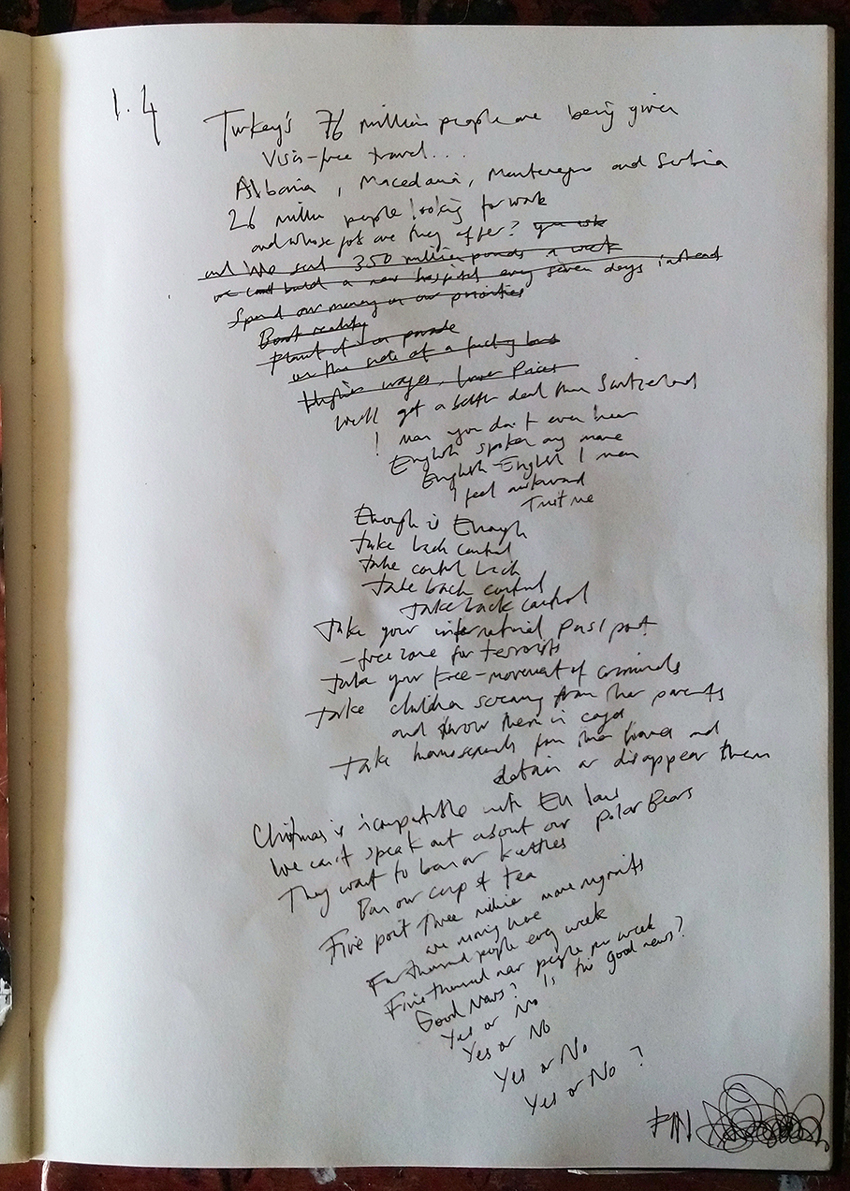 1.4
Turkey's 76 million people are being given
Visa-free travel...
Albania, Macedonia, Montenegro and Serbia
26 million people looking for work
and whose job are they after?
and We send 350 million pounds a week
we could build a new hospital every seven days instead
Spend our money on our priorities
Boost reality
Plant it on parade
on the side of a fucking bus
Higher wages, lower Prices
We'll get a better deal than Switzerland
I mean you don't even hear
English spoken any more
English-English I mean
I feel awkward
Trust me
Enough is Enough
Take back control
Take control back
Take back control
Take back control
Take your international passport
-free zone for terrorists
Take your free-movement of criminals
Take children screaming from their parents
and throw them in cages
Take from their homes and
detain or disappear them
Christmas is incompatible with EU law
We can't speak out about our Polar Bears
They want to ban our kettles
Ban our cup of tea
Five point three million more migrants
are moving here
thousand people every week
Five thousand new people per week
Good News? Is this good news?
Yes or No
Yes or No
Yes or No
Yes or No?
FIN